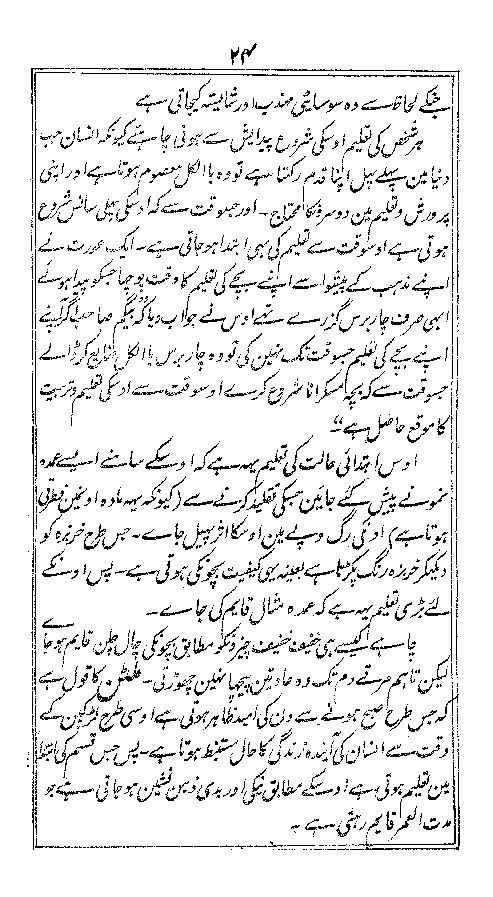 ۲۴
جنکے لحاظ سے وہ سوسایٹی مہذب اور شایستہ کیجاتی ہے
ہر شخص کی تعلیم اوسکی شروع پیدایش سے ہونی چاہئے کیونکہ انسان جب
دنیا مین پہلے پہل اپنا قدم رکہتا ہے تو وہ باالکل معصوم ہوتا ہے اور اپنی
پرورش و تعلیم مین دوسرونکا محتاج - اور جسوقت سے کہ اوسکی پہلی سانس شروع
ہوتی ہے اوسوقت سے تعلیم کی بہی ابتدا ہو جاتی ہے - ایک عورت نے
اپنے مذہب کے پیشوا سے اپنے بچے کی تعلیم کا وقت پوچہا جسکو پیدا ہوئے
ابہی صرف چار برس گزرے تہے اوس نے جواب دیا کہ "بیگم صاحب اگر آپنے
اپنے بچے کی تعلیم جسوقت تک نہین کی تو وہ چار برس باالکل ضایع کر ڈالے
جسوقت سے کہ بچہ مسکرانا شروع کرے اوسوقت سے اوسکی تعلیم و تربیت
کا موقع حاصل ہے"
اوس ابتدائی حالت کی تعلیم یہہ ہے کہ اوسکے سامنے ایسے عمدہ
نمونے پیش کئے جاین جسکی تقلید کرنے سے (کیونکہ یہہ مادہ اونمین فطرتی
ہوتا ہے) اونکی رگ و پے مین اوسکا اثر پہیل جاے - جس طرح خربزہ کو
دیکہکر خربزہ رنگ پکڑتا ہے بعینہ یہی کیفیت بچونکی ہوتی ہے - پس اونکے
لئے بڑی تعلیم یہہ ہے کہ عمدہ مثال قایم کی جاے -
چاہے کیسے ہی خفیف خفیف چیزونکو مطابق بچونکی چال چلن قایم ہو جاے
لیکن تاہم مرتے دم تک وہ عادتین پیچہا نہین چہوڑتی - ملٹن کا قول ہے
کہ جس طرح صبح ہونے سے دن کی امید ظاہر ہوتی ہے اوسی طرح لڑکپن کے
وقت سے انسان کی آیندہ زندگی کا حال مستنبط ہوتا ہے - پس جس قسم کی ابتدا
مین تعلیم ہوتی ہے اوسکے مطابق نیکی اور بدی ذہن نشین ہو جاتی ہے جو
مدت العمر قایم رہتی ہے -